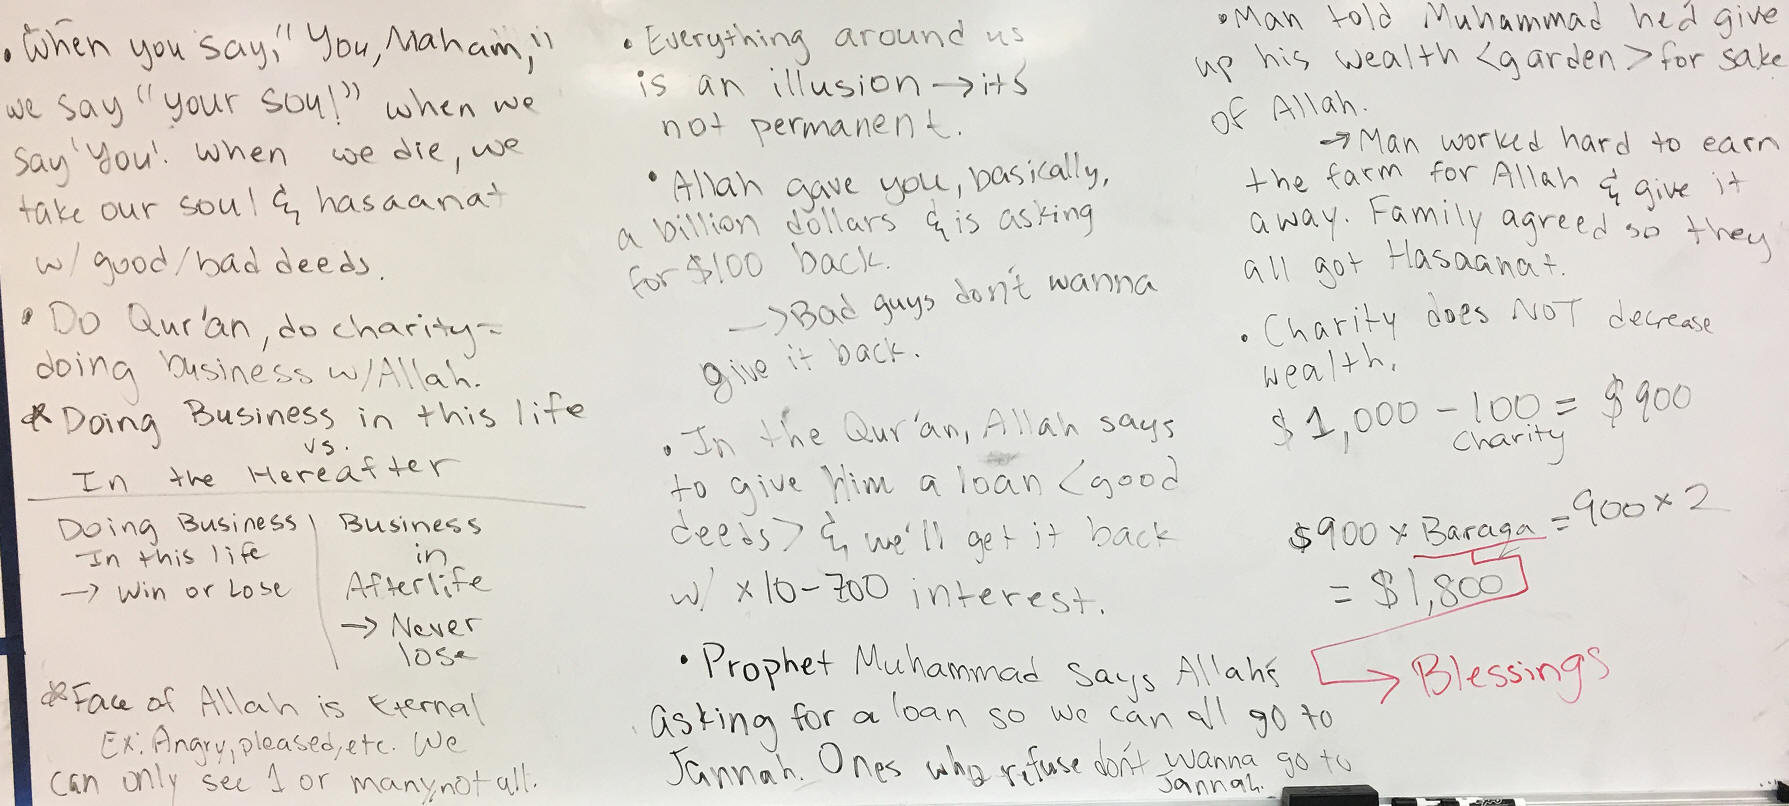 • When you say, "You, Maham,"
we say "your soul" when we
say 'You'. When we die, we
take our soul & hasaanat
w/ good/bad deeds.
• Do Qur'an, do charity =
doing business w/Allah.
* Doing Business in this life
vs.
In the Hereafter
Doing Business
In this life
→ Win or Lose
Business
in
Afterlife
→ Never
lose
* Face of Allah is Eternal
Ex: Angry, pleased, etc. We
can only see 1 or many, not all.
• Everything around us
is an illusion → it's
not permanent.
• Allah gave you, basically,
a billion dollars & is asking
for $100 back.
→ Bad guys don't wanna
give it back.
• In the Qur'an, Allah says
to give Him a loan <good
deeds> & we'll get it back
w/ x10-700 interest.
• Prophet Muhammad says Allah's
asking for a loan so we can all go to
Jannah. Ones who refuse don't wanna go to
Jannah.
• Man told Muhammad he'd give
up his wealth <garden> for sake
of Allah.
→ Man worked hard to earn
the farm for Allah & give it
away. Family agreed so they
all got Hasaanat.
• Charity does NOT decrease
wealth.
$1,000 - 100 = $900
Charity
$900 x Baraqa = 900 x 2
= $1,800
→ Blessings